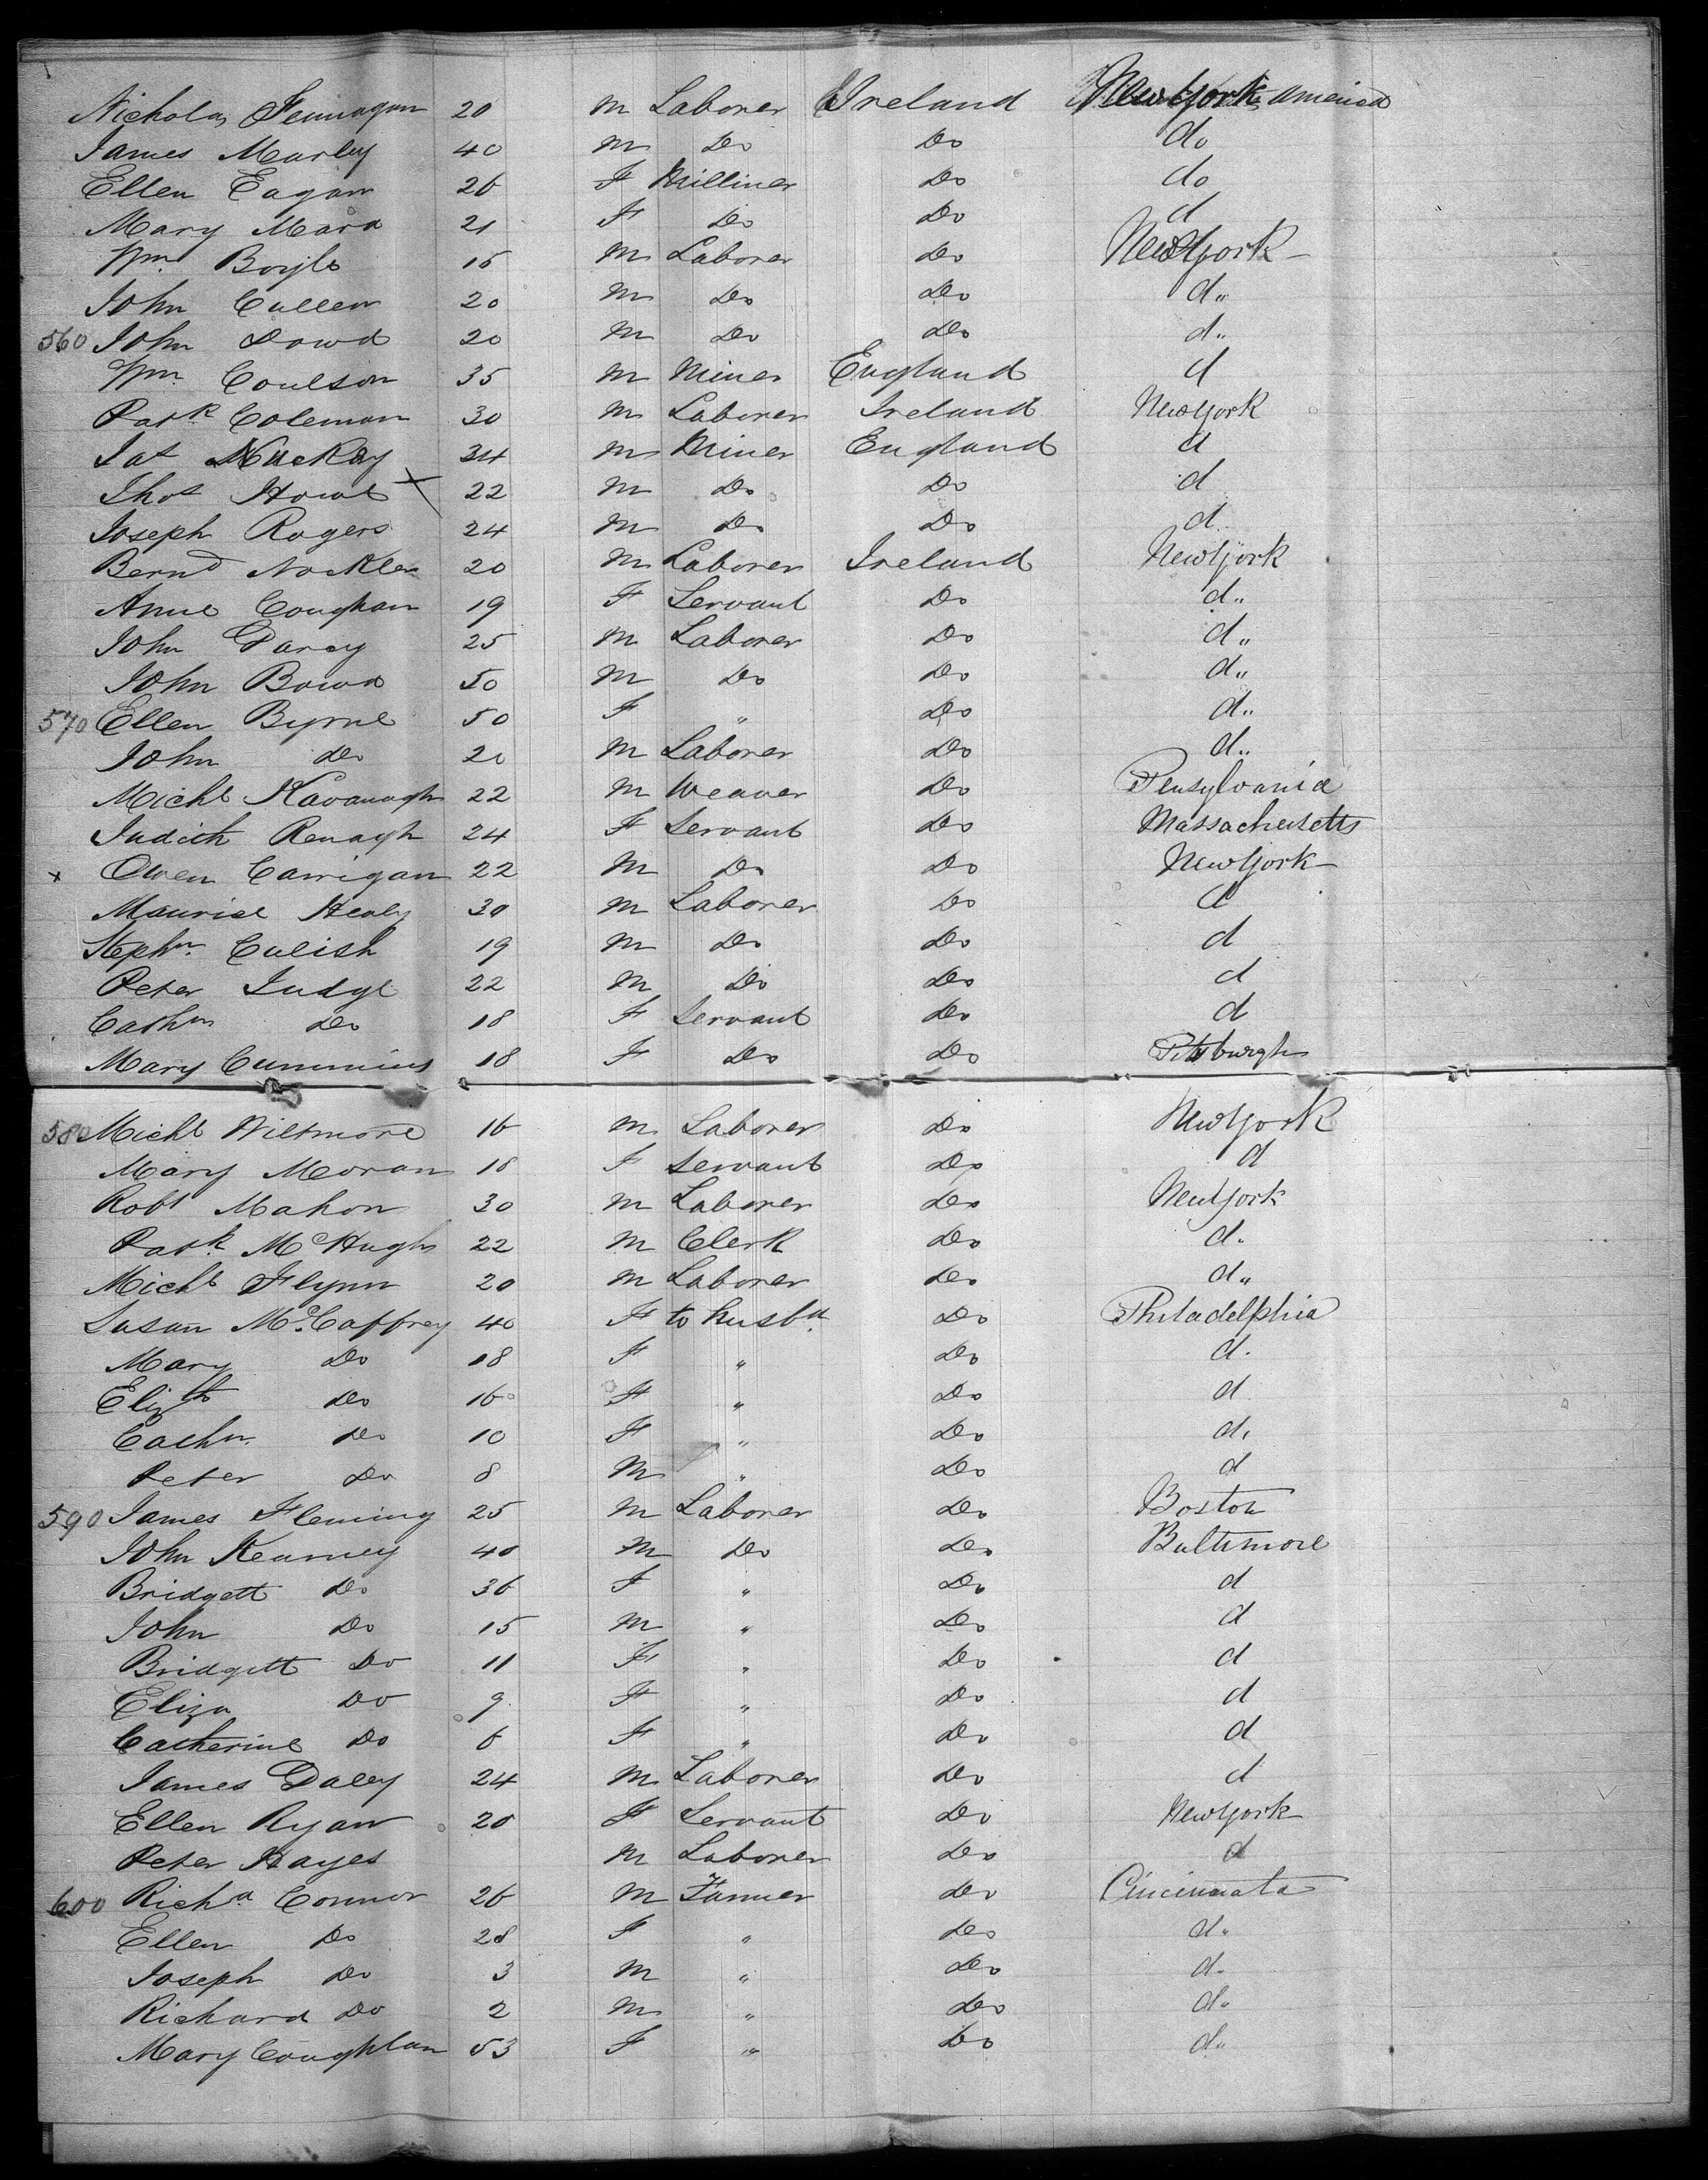 Nicholas Flennagan 20 m Laborer Ireland New York America
James Marley 40 m Do Do do
Ellen Eagan 26 F Milliner Do do
Mary Mara 21 F Do Do d
Wm Boyle 15 m Laborer Do New York
John Cullen 20 m Do Do d"
560 John Dowd 20 m Do Do d"
Wm Coulson 35 m Miner England d
Patk Coleman 30 m Laborer Ireland New York
Jas MacKay 34 m Miner England d
Thos Howe x 22 m Do Do d
Joseph Rogers 24 m Do Do d
Bernd Nockler 20 m Laborer Ireland New York
Anne Coughan 19 F Servant Do d"
John Darcy 25 m Laborer Do d"
John Bowd 50 m Do Do d"
570 Ellen Byrne 50 F " Do d"
John Do 20 m Laborer Do d"
Michl Kavanagh 22 m Weaver Do Pensylvania
Judith Renagh 24 F Servant Do Massachusetts
x Owen Carrigan 22 m Do Do New York
Maurice Healy 30 m Laborer Do d
Stephn Culish 19 m Do Do d
Peter Judge 22 m Do Do d
Cathn Do 18 F Servant Do d
Mary Cummins 18 F Do Do Pittsburgh
580 Michl Wiltmore 16 m Laborer Do New York
Mary Moran 18 F Servant Do d
Robt Mahon 30 m Laborer Do New York
Patk McHugh 22 m Clerk Do d.
Michl Flynn 20 m Laborer Do d"
Susan McCaffrey 40 F to husbd Do Philadelphia
Mary Do 18 F " Do d.
Elizth Do 16 F " Do d
Cathn Do 10 F " Do d.
Peter Do 8 m " Do d
590 James Fleming 25 m Laborer Do Boston
John Kearney 40 m Do Do Baltimore
Bridgett Do 36 F " Do d
John Do 15 m " Do d
Bridgett Do 11 F " Do d
Eliza Do 9 F " Do d
Catherine Do 6 F " Do d
James Daley 24 m Laborer Do d
Ellen Ryan 20 F Servant Do New York
Peter Hayes m Laborer Do d
600 Richd Connor 26 m Farmer Do Cincinnata
Ellen Do 28 F " Do d"
Joseph Do 3 m " Do d"
Richard Do 2 m " Do d"
Mary Coughlan 53 F " Do d"